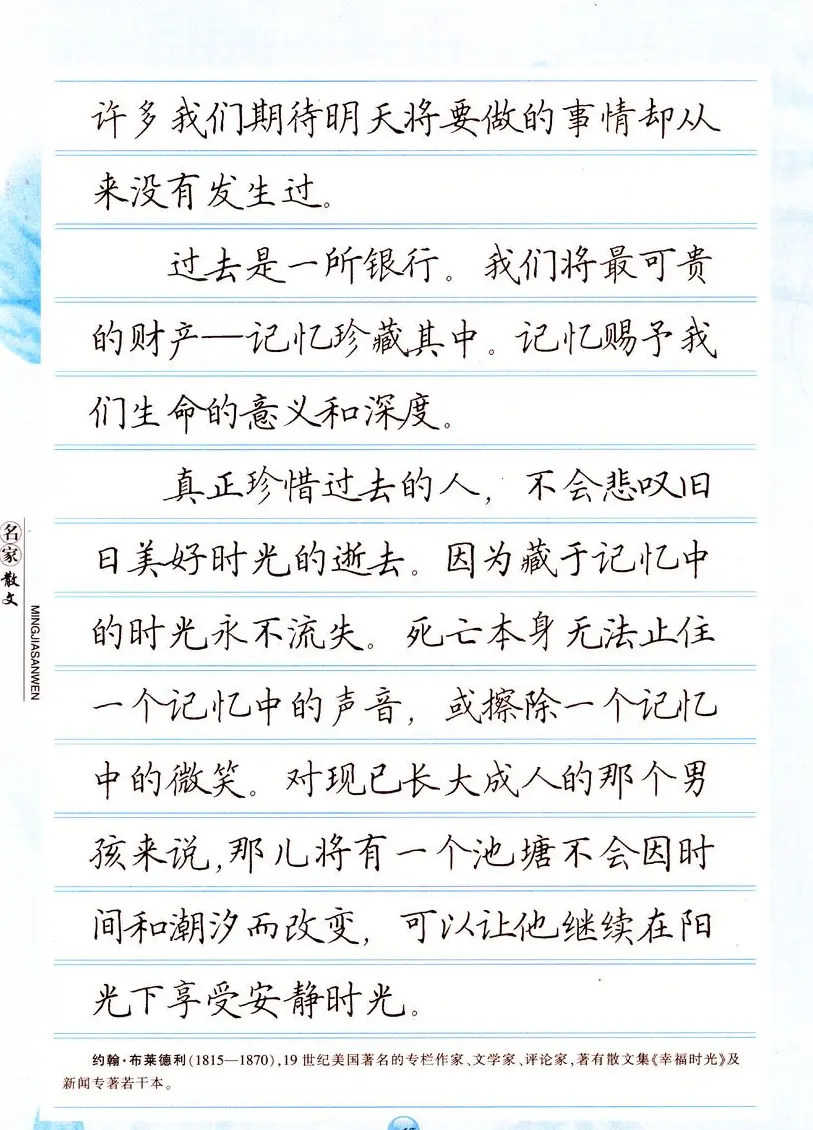 许多我们期待明天将要做的事情却从
来没有发生过。
过去是一所银行。我们将最可贵
的财产—记忆珍藏其中。记忆赐予我
们生命的意义和深度。
真正珍惜过去的人，不会悲叹旧
日美好时光的逝去。因为藏于记忆中
的时光永不流失。死亡本身无法止住
一个记忆中的声音，或擦除一个记忆
中的微笑。对现已长大成人的那个男
孩来说,那儿将有一个池塘不会因时
间和潮汐而改变，可以让他继续在阳
光下享受安静时光。
名家散文
MINGJIASANWEN
约翰·布莱德利(1815—1870),19世纪美国著名的专栏作家、文学家、评论家,著有散文集《幸福时光》及
新闻专著若干本。